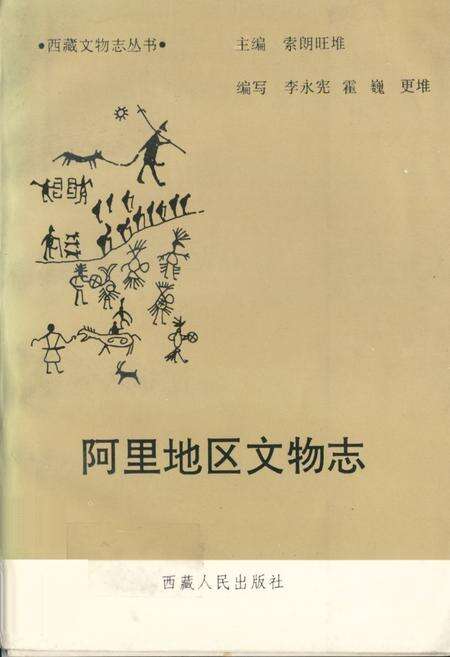 •西藏文物志丛书•
主编 索朗旺堆
编写 李永宪 霍 巍 更堆
阿里地区文物志
西藏人民出版社